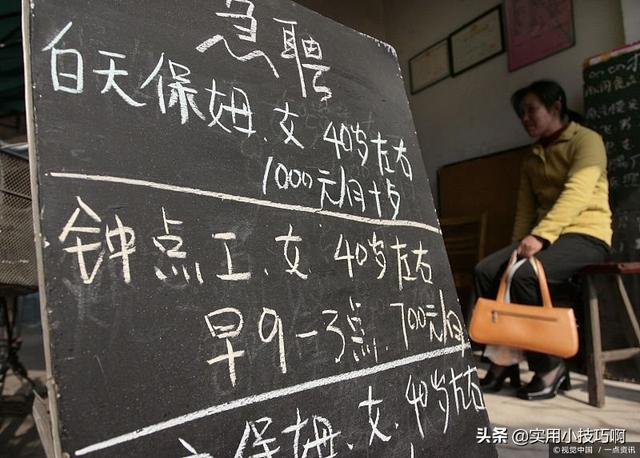 急聘
白天保姆、女40岁左右
1000元/月
钟点工、女、40岁左右
早9-3点、700元/月
保姆、女、40岁左右
头条 @实用小技巧啊
©视觉中国 / 一点资讯